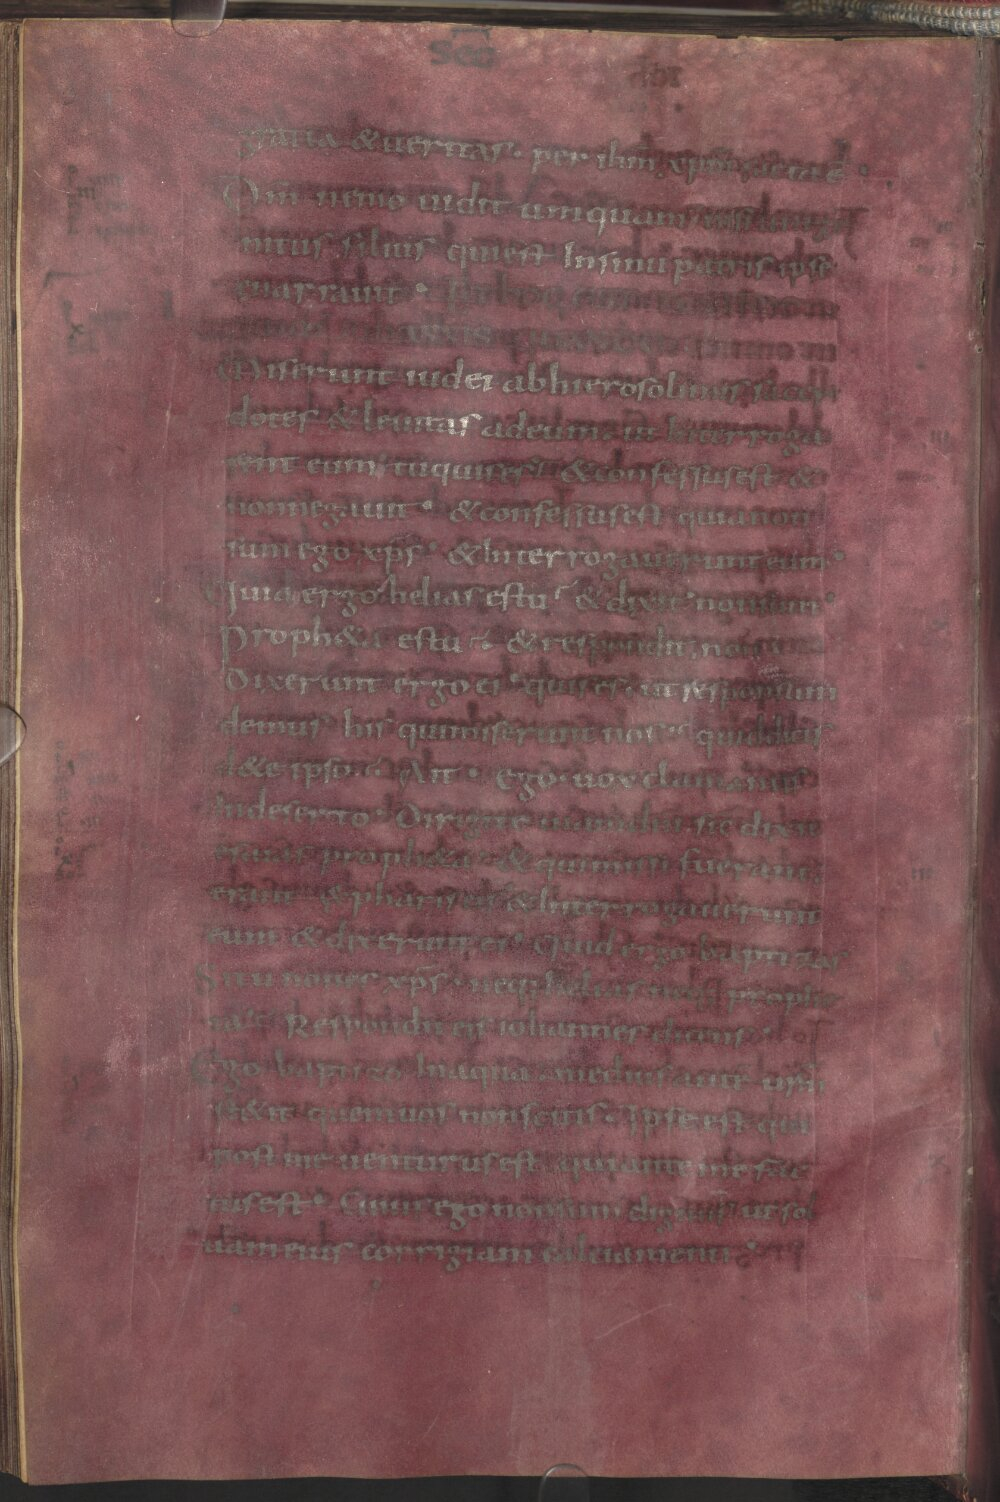 Sco
gratia & ueritas. per ihm xpm facta e.
Dm nemo uidit umquam nisi unige
nitus filius qui est In sinu patris ipse
enarrauit.
Miserunt iudei ab hierosolimis sacer
dotes & leuitas ad eum. ut Interroga
rent eum tu quis es & confessus est &
non negauit. & confessus est quia non
sum ego xps. & Interrogauerunt eum.
Quid ergo helias es tu & dixit non sum.
Proph&a es tu & respondit. non
Dixerunt ergo ei quis es. ut responsum
demus his qui miserunt nos. quid dicis
de te ipso. Ait. ego uox clamantis
In deserto. Dirigite uiam dni sic dixit
esaias proph&a. & qui missi fuerant.
erant ex phariseis & Interrogauerunt
eum & dixerunt ei. Quid ergo baptizas
Si tu non es xps. neq; helias neq; prophe
ta. Respondit eis iohannes dicens.
Ego baptizo In aqua. medius aut urm
st&it quem uos non scitis. Ipse est qui
post me uenturus est qui ante me fac
tus est. Cuius ego non sum dignus ut sol
uam eius corrigiam calciamenti.